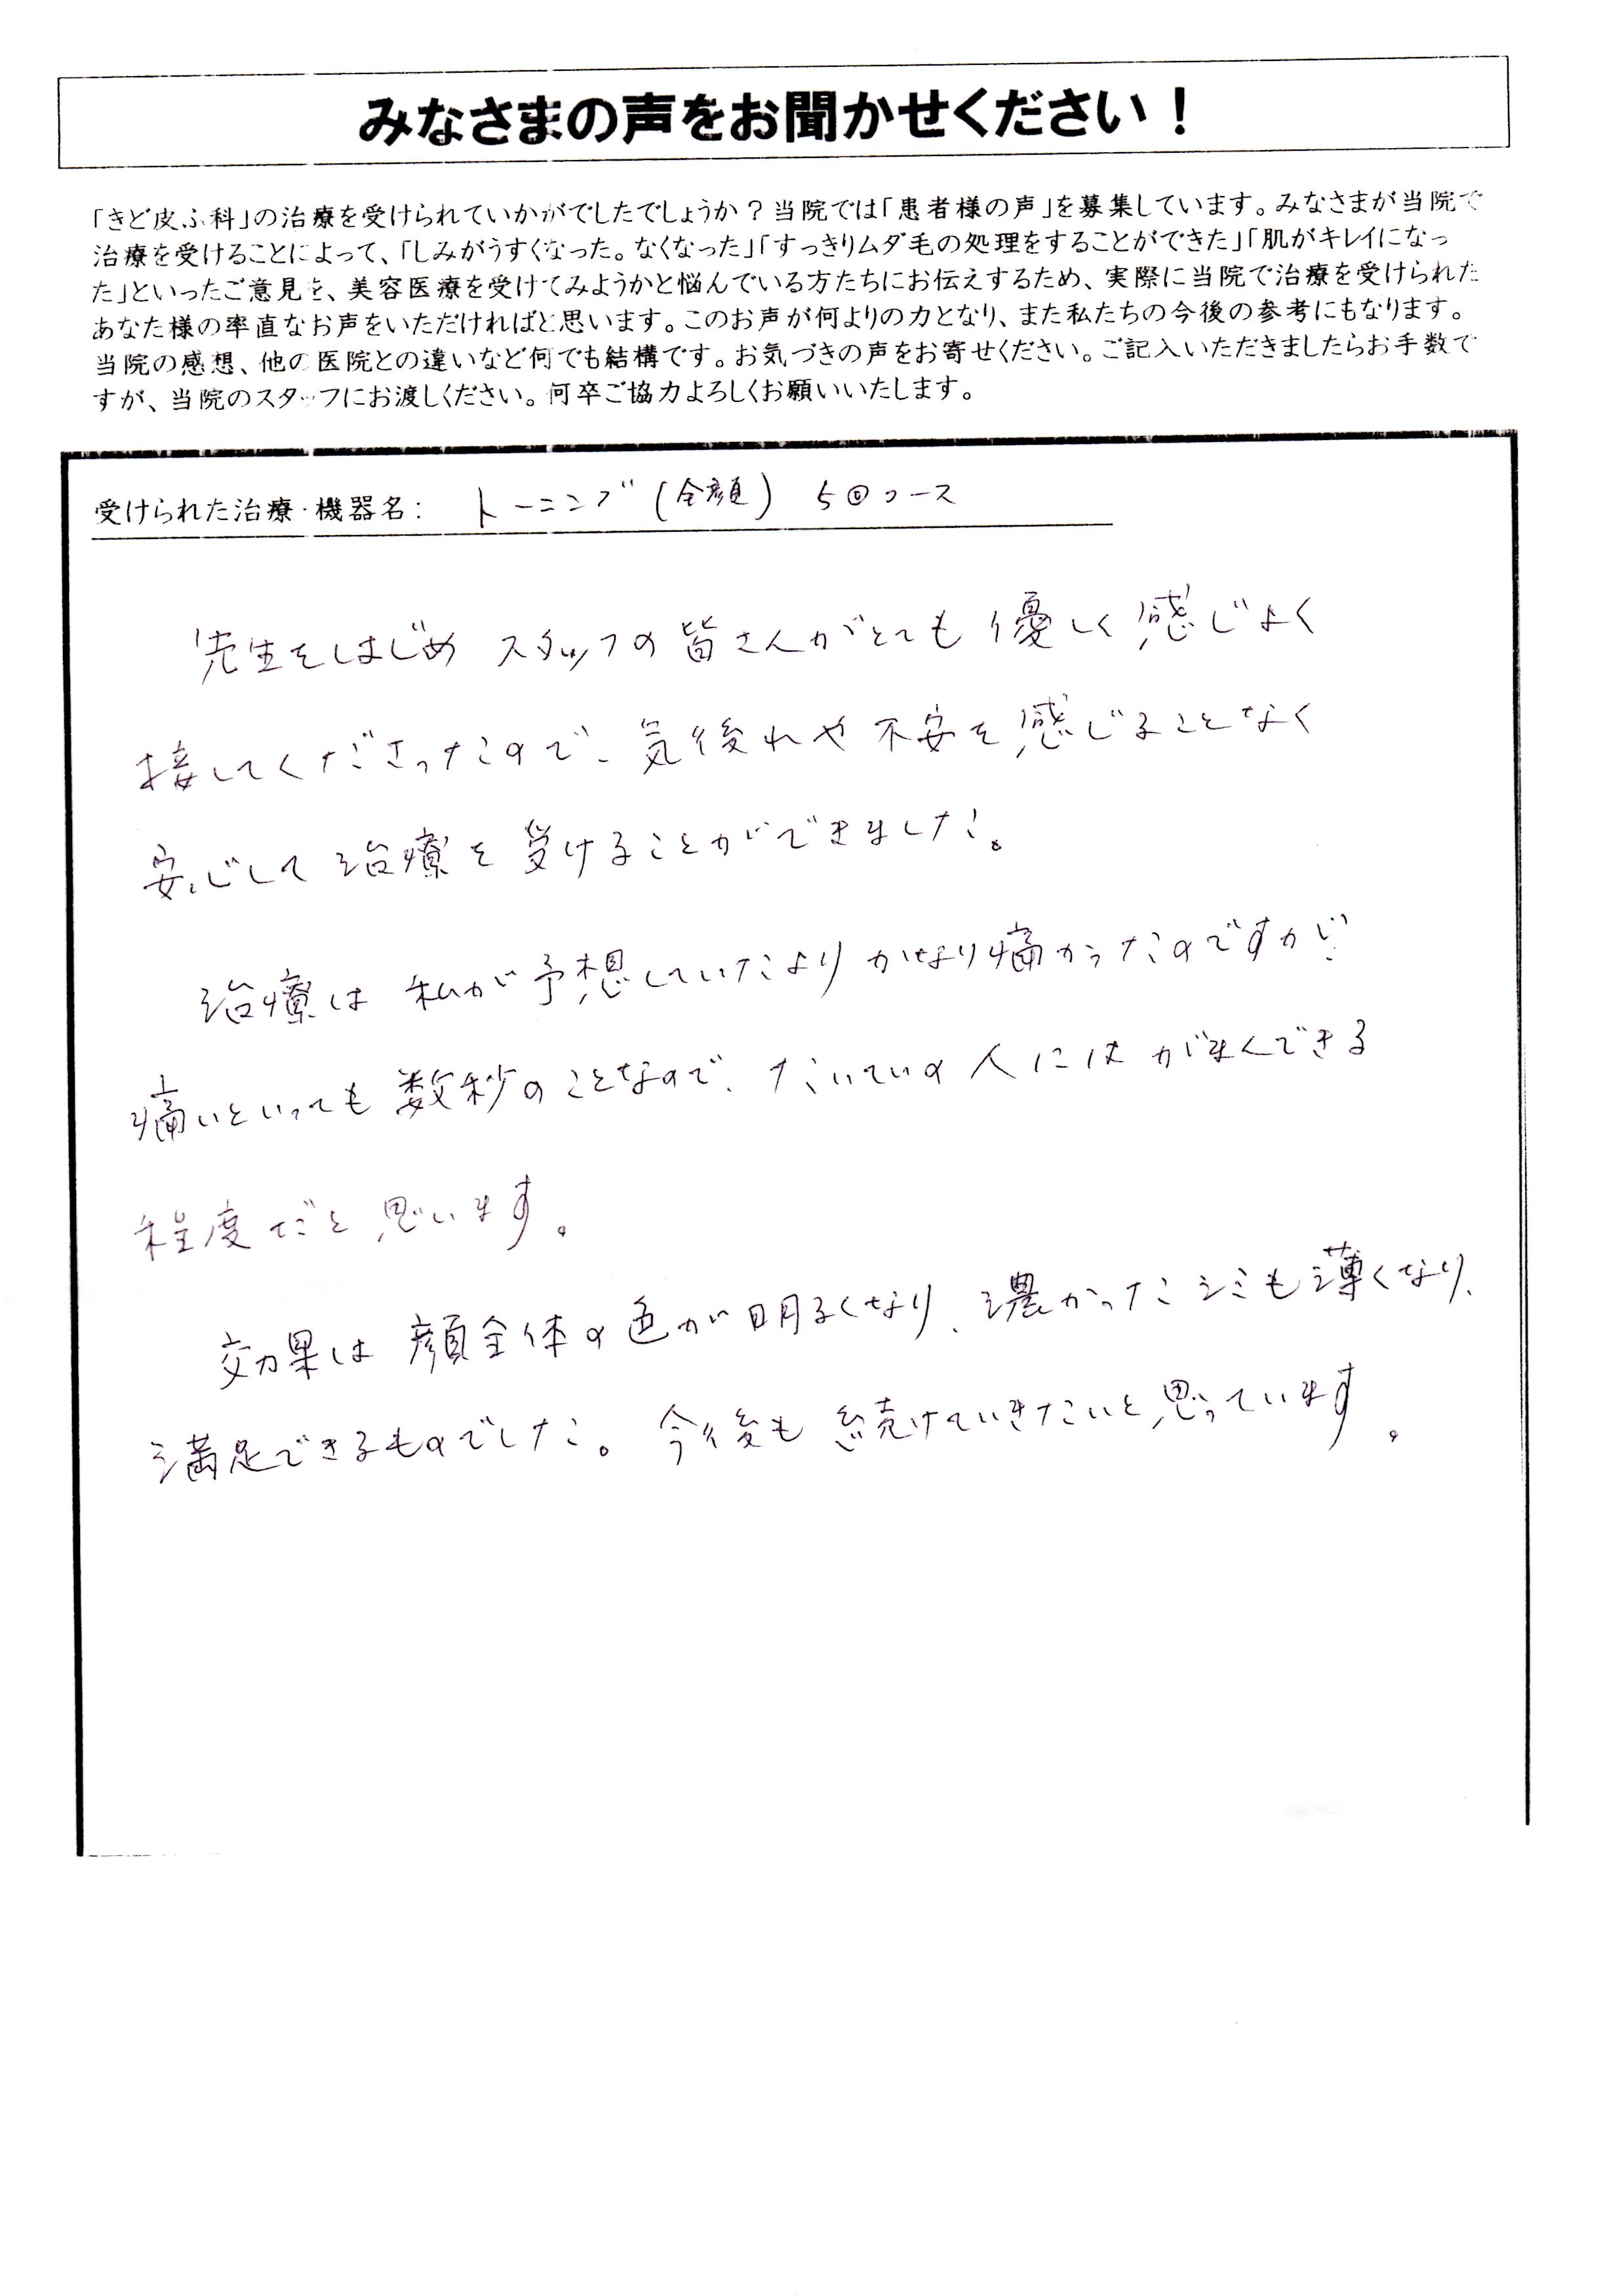 みなさまの声をお聞かせください！
「きど皮ふ科」の治療を受けられていかがでしたでしょうか？当院では「患者様の声」を募集しています。みなさまが当院で
治療を受けることによって、「しみがうすくなった。なくなった」「すっきりムダ毛の処理をすることができた」「肌がキレイになっ
た」といったご意見を、美容医療を受けてみようかと悩んでいる方たちにお伝えするため、実際に当院で治療を受けられた
あなた様の率直なお声をいただければと思います。このお声が何よりの力となり、また私たちの今後の参考にもなります。
当院の感想、他の医院との違いなど何でも結構です。お気づきの声をお寄せください。ご記入いただきましたらお手数で
すが、当院のスタッフにお渡しください。何卒ご協力よろしくお願いいたします。
受けられた治療・機器名： トーニング（全顔） 5回コース
先生をはじめ スタッフの皆さんがとても優しく感じよく
接してくださったので、気後れや不安を感じることなく
安心して治療を受けることができました。
治療は 私が予想していたよりかなり痛かったのですが
痛いといっても数秒のことなので、たいていの人にはがまんできる
程度だと思います。
効果は 顔全体の色が明るくなり、濃かったシミも薄くなり、
満足できるものでした。今後も続けていきたいと思っています。